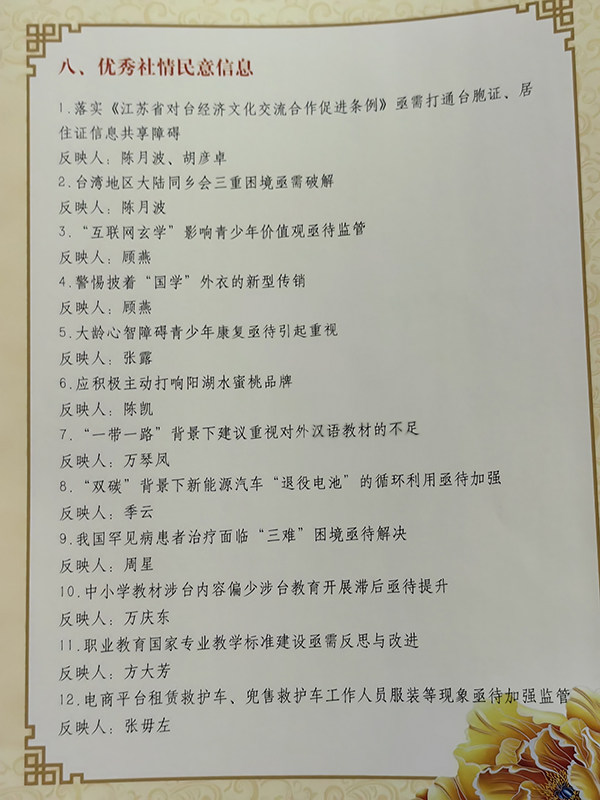 八、优秀社情民意信息
1.落实《江苏省对台经济文化交流合作促进条例》亟需打通台胞证、居
住证信息共享障碍
反映人：陈月波、胡彦卓
2.台湾地区大陆同乡会三重困境亟需破解
反映人：陈月波
3.“互联网玄学”影响青少年价值观亟待监管
反映人：顾燕
4.警惕披着“国学”外衣的新型传销
反映人：顾燕
5.大龄心智障碍青少年康复亟待引起重视
反映人：张露
6.应积极主动打响阳湖水蜜桃品牌
反映人：陈凯
7.“一带一路”背景下建议重视对外汉语教材的不足
反映人：万琴凤
8.“双碳”背景下新能源汽车“退役电池”的循环利用亟待加强
反映人：季云
9.我国罕见病患者治疗面临“三难”困境亟待解决
反映人：周星
10.中小学教材涉台内容偏少涉台教育开展滞后亟待提升
反映人：万庆东
11.职业教育国家专业教学标准建设亟需反思与改进
反映人：方大芳
12.电商平台租赁救护车、兜售救护车工作人员服装等现象亟待加强监管
反映人：张毋左